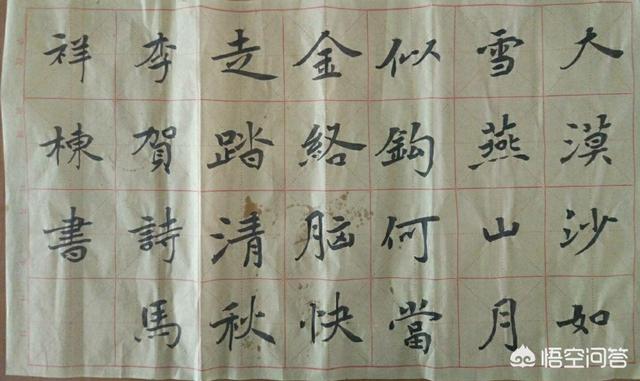 大漠沙如
雪燕山月
似鈎何當
金絡脑快
走踏清秋
李賀詩馬
祥棟書
悟空问答